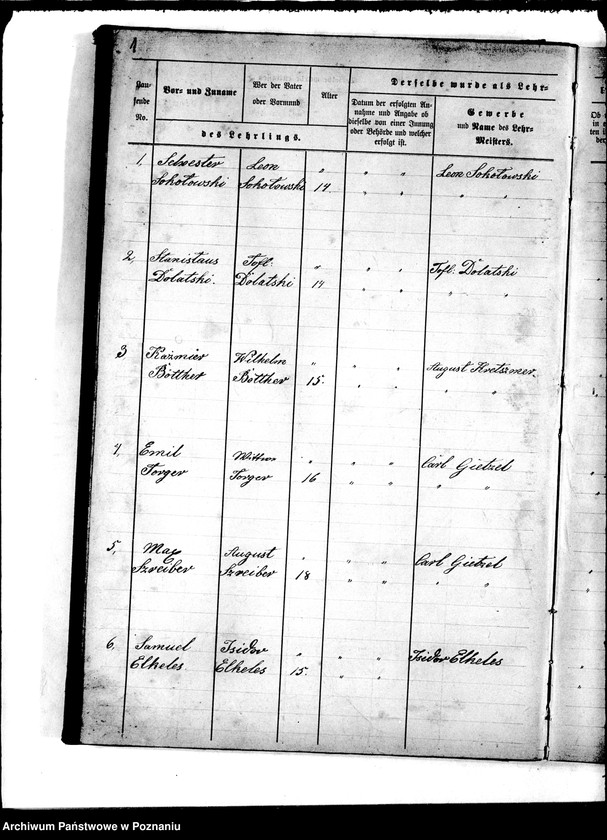 1
Lau-
fende
No.
Vor- und Zuname
Wer der Vater
oder Vormund
Alter
des Lehrlings.
Derselbe wurde als Lehr-
Datum der erfolgten An-
nahme und Angabe ob
dieselbe von einer Innung
oder Behörde und welcher
erfolgt ist.
Gewerbe
und Name des Lehr-
Meisters.
1. Selwester Leon " " " Leon Sokotowski
Sokotowski Sokotowski 14 " " " "
2, Stanislaus Tofl: " " " Tofl: Dolatski
Dolatski. Dolatski 14 " " " "
3 Kazmier Wilhelm " " " August Kretszmer.
Böttker Böttker 15. " " " "
4, Emil " " " Carl Gietzel
Torger Torger 16 " " " "
5, Max August " " " Carl Gietzel
Szreiber Szreiber 18 " " " "
6, Samuel Isidor " " " Isidor Elkeles
Elkeles Elkeles 15. " "
Archiwum Państwowe w Poznaniu